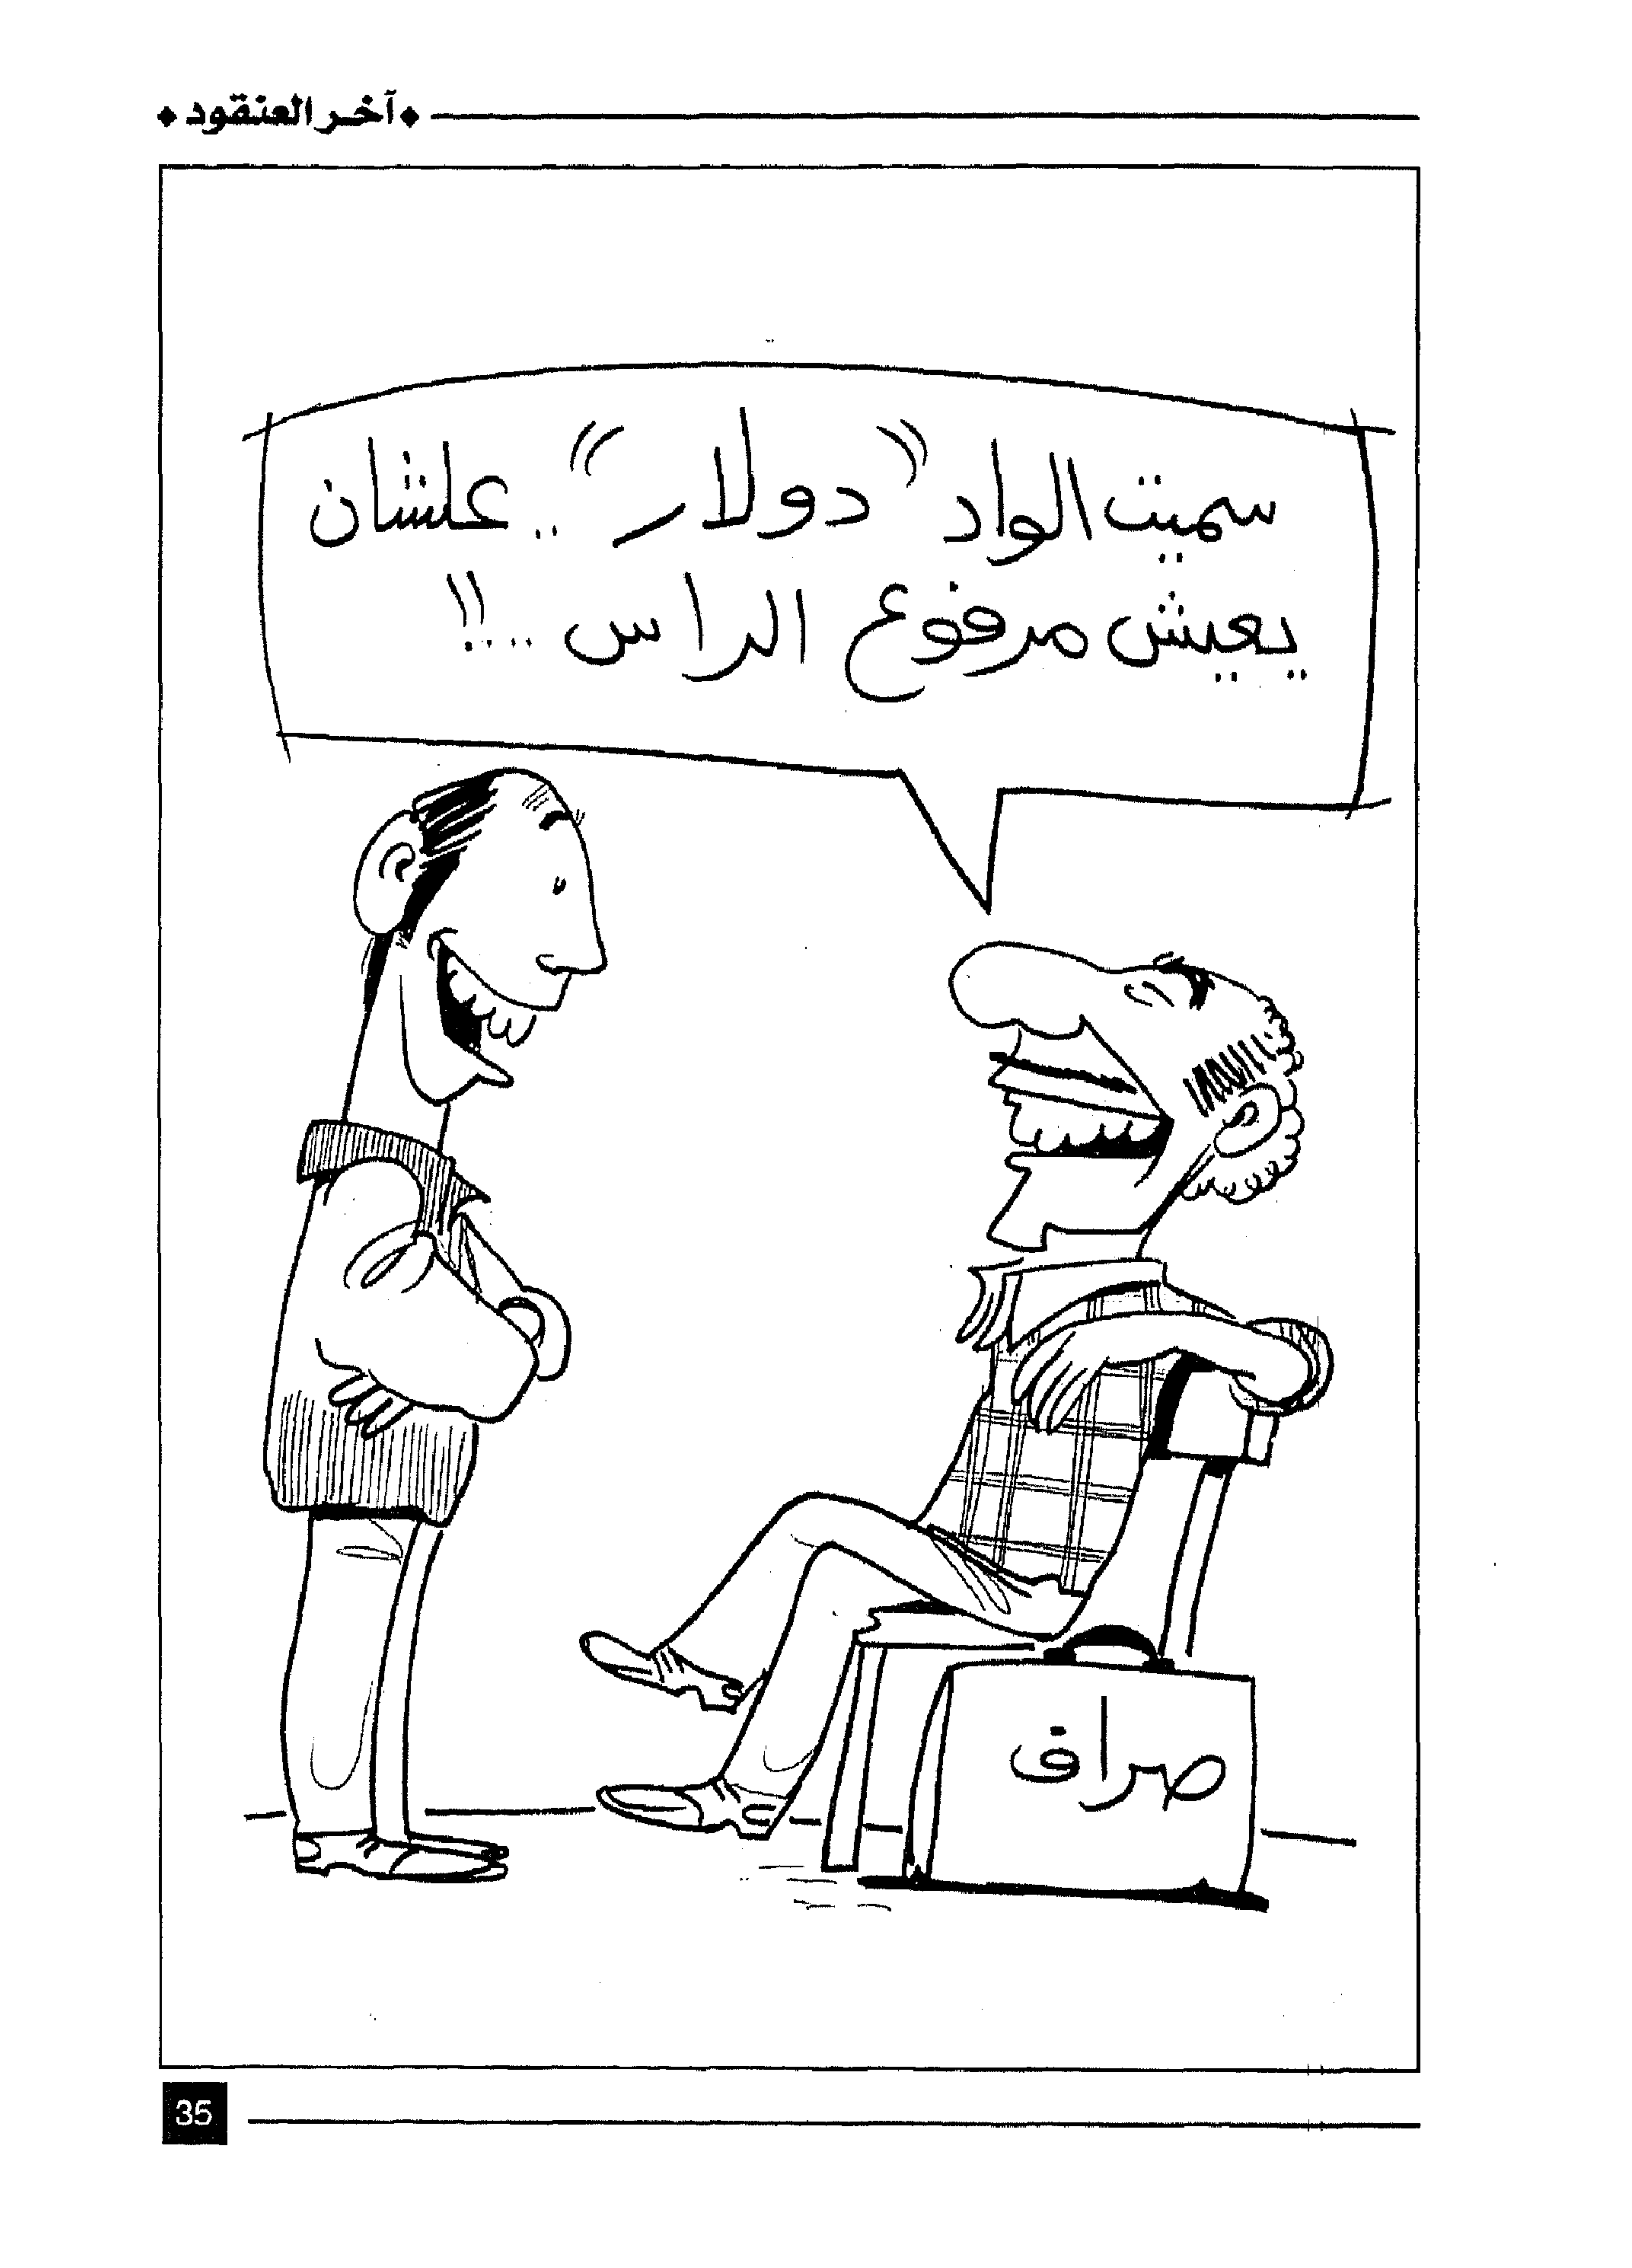 آخر العنقود
سميت الواد "دولار".. علشان
يعيش مرفوع الراس ..!!
صراف
35